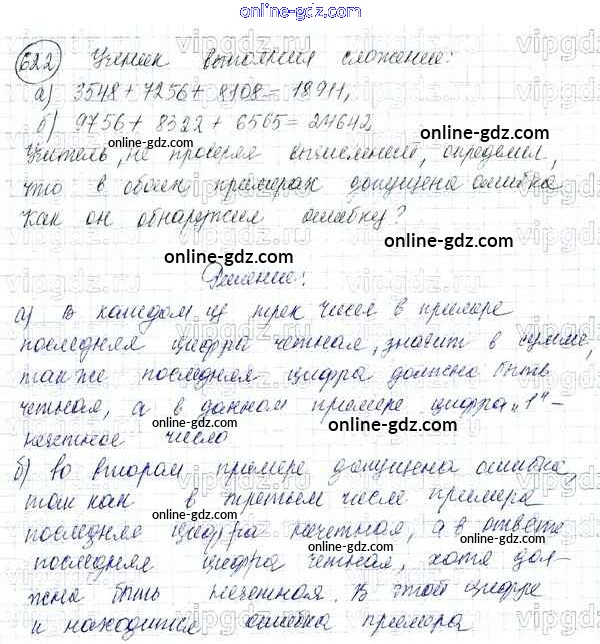 online-gdz.com
622 Ученик выполнил сложение:
а) 3548 + 7256 + 8108 = 18911,
б) 9756 + 8322 + 6565 = 24642
online-gdz.com
Учитель, не проверяя вычислений, определил,
что в обоих примерах допущена ошибка.
online-gdz.com
Как он обнаружил ошибку?
online-gdz.com
online-gdz.com
Решение:
а) В каждом из трех чисел в примере
online-gdz.com
последняя цифра четная, значит в сумме,
также последняя цифра должна быть
online-gdz.com
четная, а в данном примере цифра „1“ -
online-gdz.com
нечетное число
б) во втором примере допущена ошибка,
online-gdz.com
так как в третьем числе примера
последняя цифра нечетная, а в ответе
online-gdz.com
последняя цифра четная, хотя дол-
жна быть нечетная. В этой цифре
online-gdz.com
и находится ошибка примера